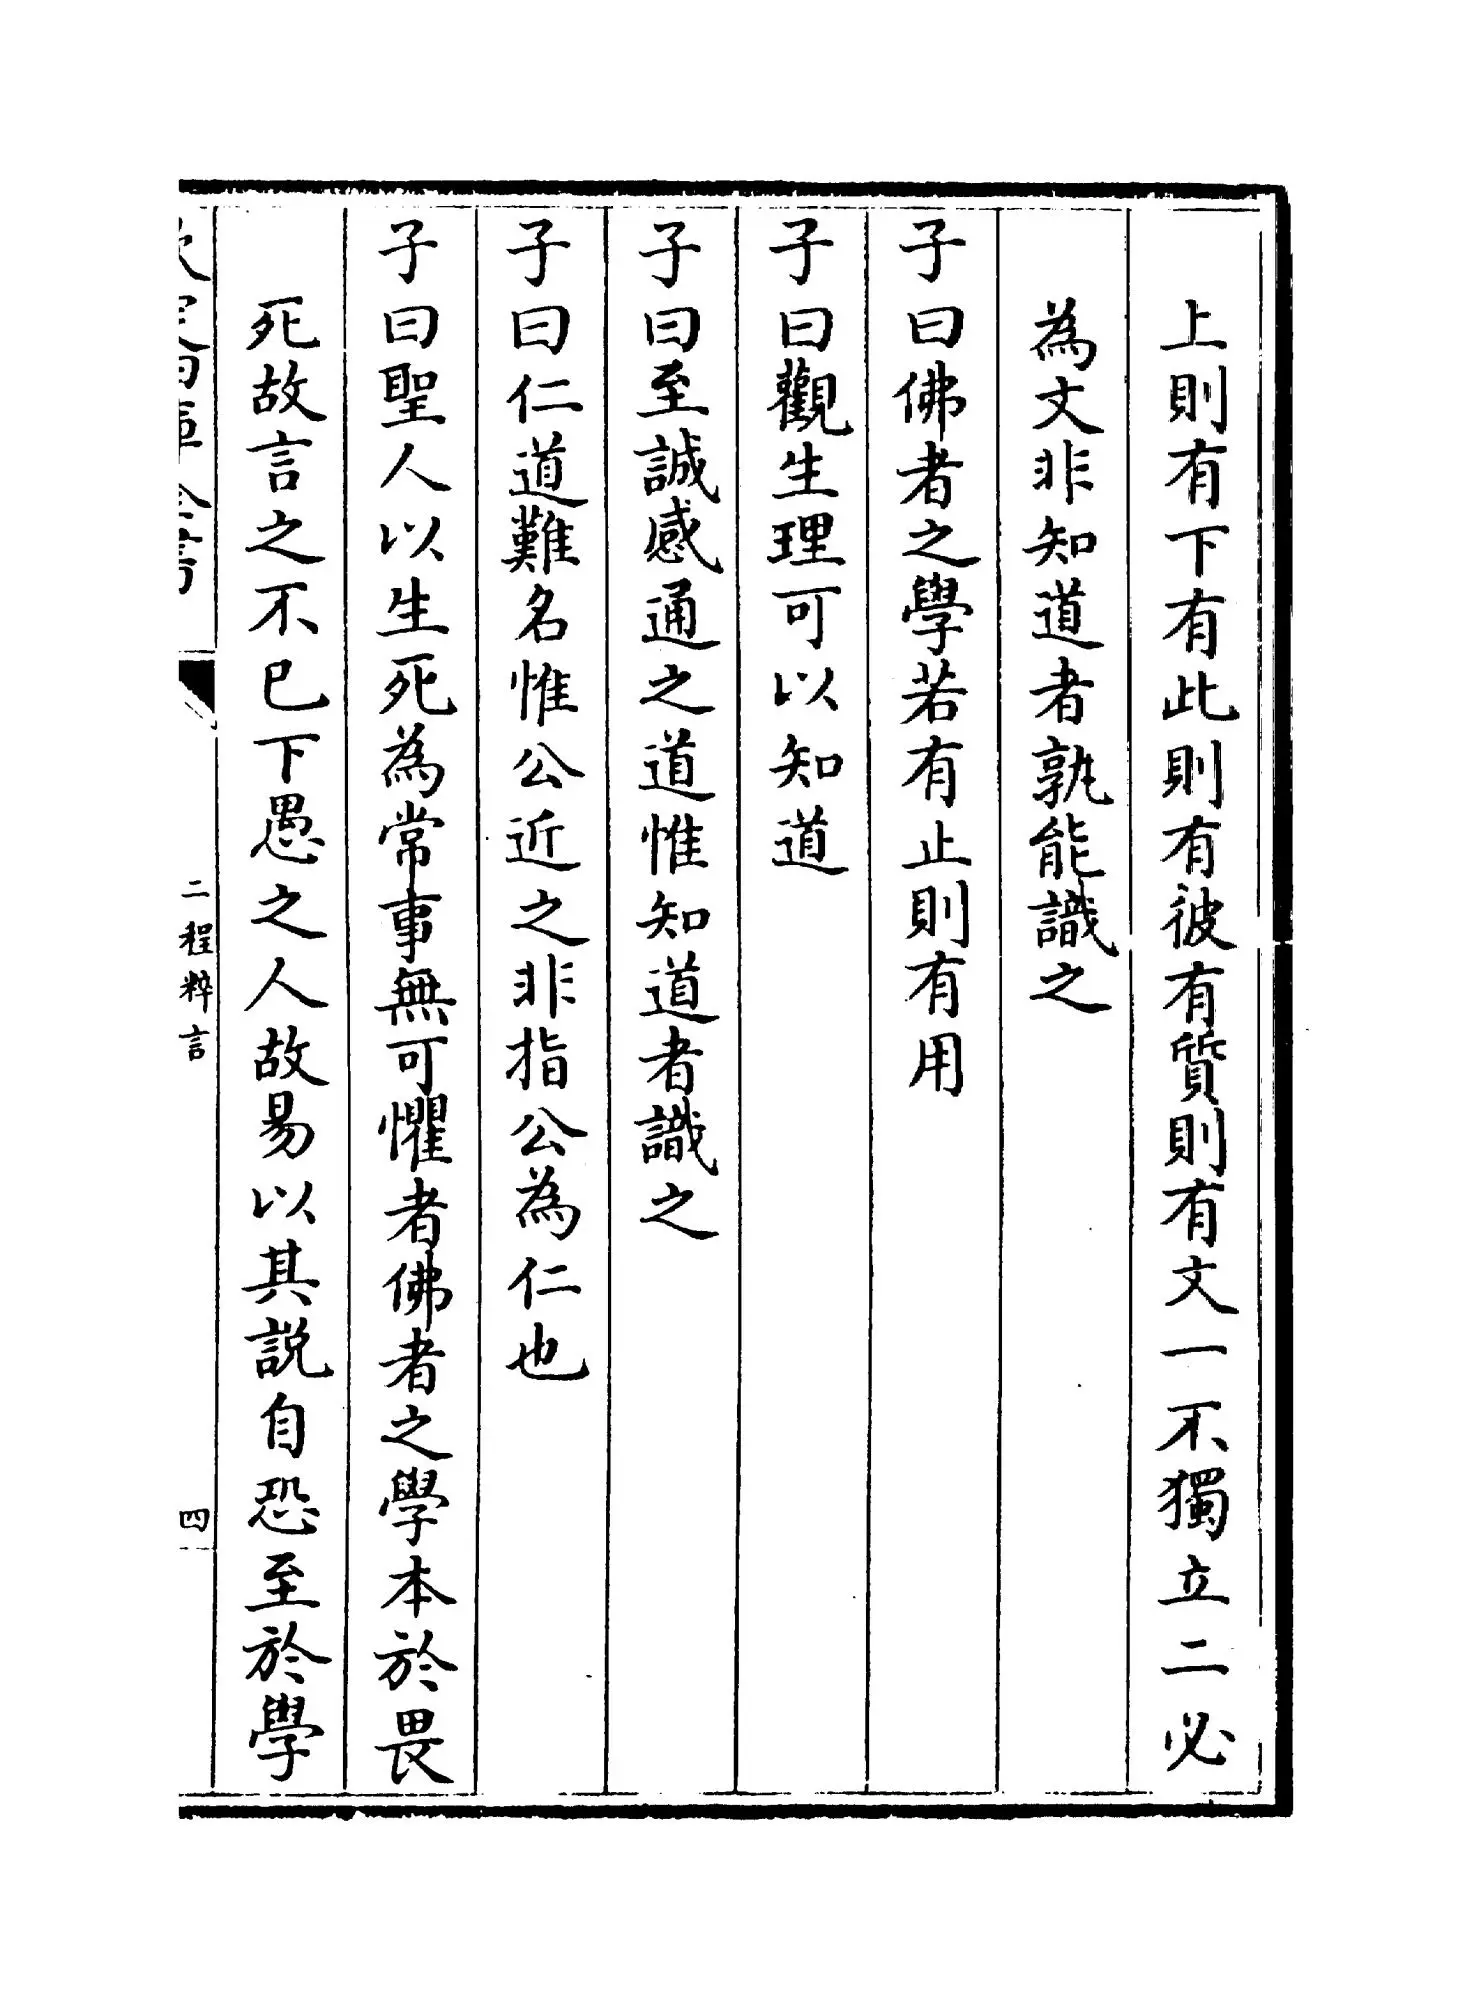 上則有下有此則有彼有質則有文一不獨立二必
為文非知道者孰能識之
子曰佛者之學若有止則有用
子曰觀生理可以知道
子曰至誠感通之道惟知道者識之
子曰仁道難名惟公近之非指公為仁也
子曰聖人以生死為常事無可懼者佛者之學本於畏
死故言之不已下愚之人故易以其説自恐至於學
欽定四庫全書
二程粹言
四